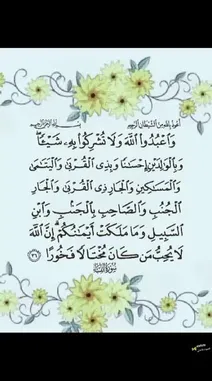 أعوذ بالله من الشيطان الرجيم
بسم الله الرحمن الرحيم
وَٱعْبُدُوا۟ ٱللَّهَ وَلَا تُشْرِكُوا۟ بِهِۦ شَيْـًٔا
وَبِٱلْوَٰلِدَيْنِ إِحْسَٰنًا وَبِذِى ٱلْقُرْبَىٰ وَٱلْيَتَٰمَىٰ
وَٱلْمَسَٰكِينِ وَٱلْجَارِ ذِى ٱلْقُرْبَىٰ وَٱلْجَارِ
ٱلْجُنُبِ وَٱلصَّاحِبِ بِٱلْجَنۢبِ وَٱبْنِ
ٱلسَّبِيلِ وَمَا مَلَكَتْ أَيْمَٰنُكُمْ إِنَّ ٱللَّهَ
لَا يُحِبُّ مَن كَانَ مُخْتَالًا فَخُورًا ٣٦
سورة النساء